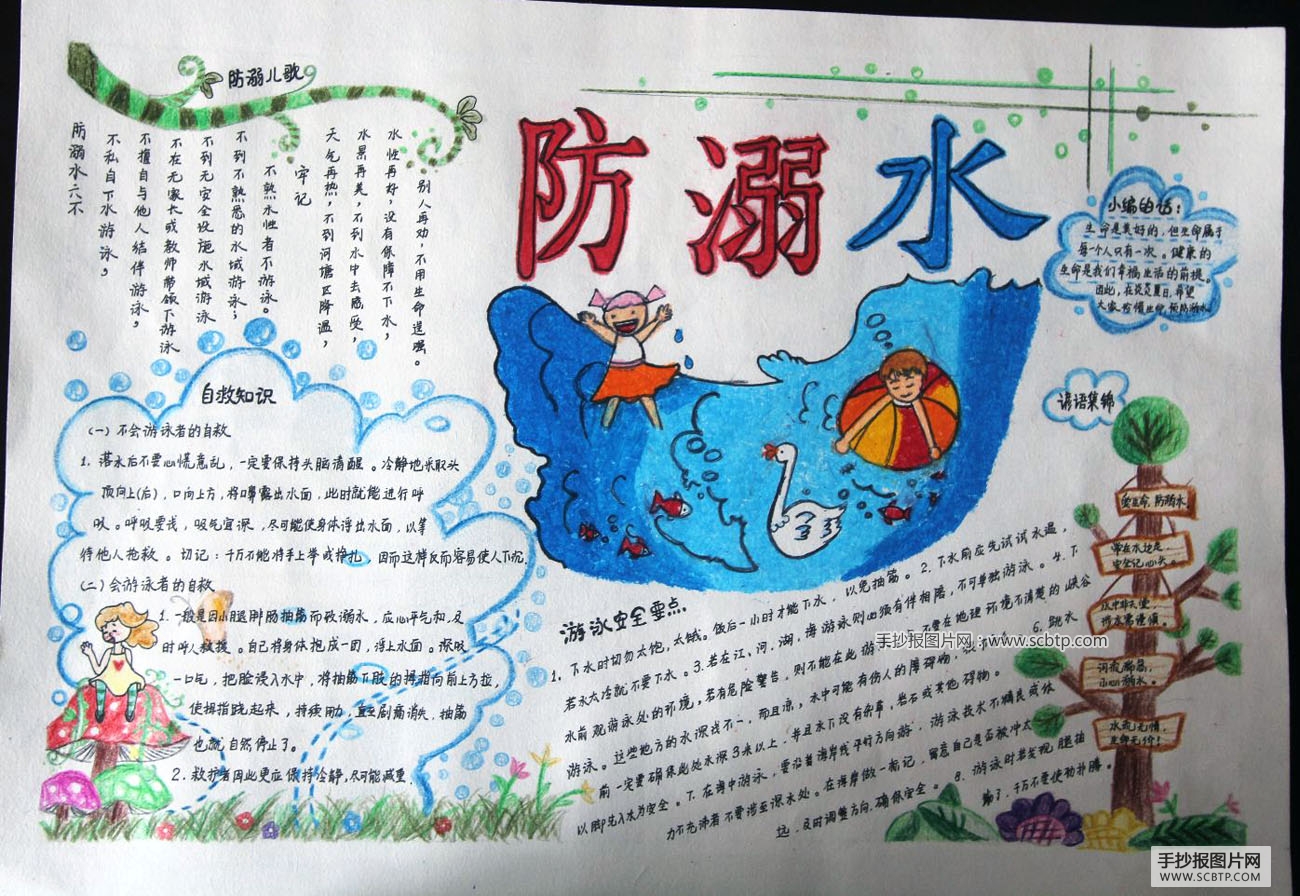 防溺水
防溺儿歌
防溺水六不
不私自下水游泳，
不擅自与他人结伴游泳，
不在无家长或教师带领下游泳
不到无安全设施水域游泳
不到不熟悉的水域游泳；
不熟水性者不游泳。
牢记
天气再热，不到河塘区降温，
水景再美，不到水中去感受，
水性再好，没有保障不下水，
别人再劝，不用生命逞强。
小编的话：
生命是美好的，但生命属于
每个人只有一次。健康的
生命是我们幸福生活的前提。
因此，在炎炎夏日，希望
大家珍惜生命，预防溺水
自救知识
(一) 不会游泳者的自救
1. 落水后不要心慌意乱，一定要保持头脑清醒。冷静地采取头
顶向上(后)，口向上方，将嘴露出水面，此时就能进行呼
吸。呼吸要浅，吸气宜深，尽可能使身体浮出水面，以等
待他人抢救。切记：千万不能将手上举或挣扎，因而这样反而容易使人下沉.
(二) 会游泳者的自救
1. 一般是因小腿腓肠抽筋而致溺水，应心平气和，及
时呼人救援。自己将身体抱成一团，浮上水面。深吸
一口气，把脸浸入水中，将抽筋下肢的拇指向前上方拉，
使拇指跷起来，持续用力，直至剧痛消失，抽筋
也就自然停止了。
2. 救护者因此更应保持冷静，尽可能减重
游泳安全要点
1. 下水时切勿太饱，太饿。饭后一小时才能下水，以免抽筋。2. 下水前应先试试水温，
若水太冷就不要下水。3. 若在江、河、湖、海游泳则必须有伴相陪，不可单独游泳。4. 下
水前观游泳处的环境，若有危险警告，则不能在此游
不要在地理环境不清楚的峡谷
游泳。这些地方的水深浅不一，而且凉，水中可能有伤人的障碍物，
6. 跳水
前一定要确保此处水深3米以上，并且水下没有杂草，岩石或其他碍物。
以脚先入水为安全。7. 在海中游泳，要沿着海岸线平行方向游，游泳技术不精良或体
力不充沛者不要涉至深水处。在海岸做一标记，留意自己是否被冲太
远，及时调整方向，确保安全。8. 游泳时若发现腿抽
筋了，千万不要使劲
谚语集锦
要生命，防溺水
常在水边走，
安全记心头。
水中非天堂，
水火无情，
生命无价！
手抄报图片网：www.scbtp.com
手抄报图片网
WWW.SCBTP.COM